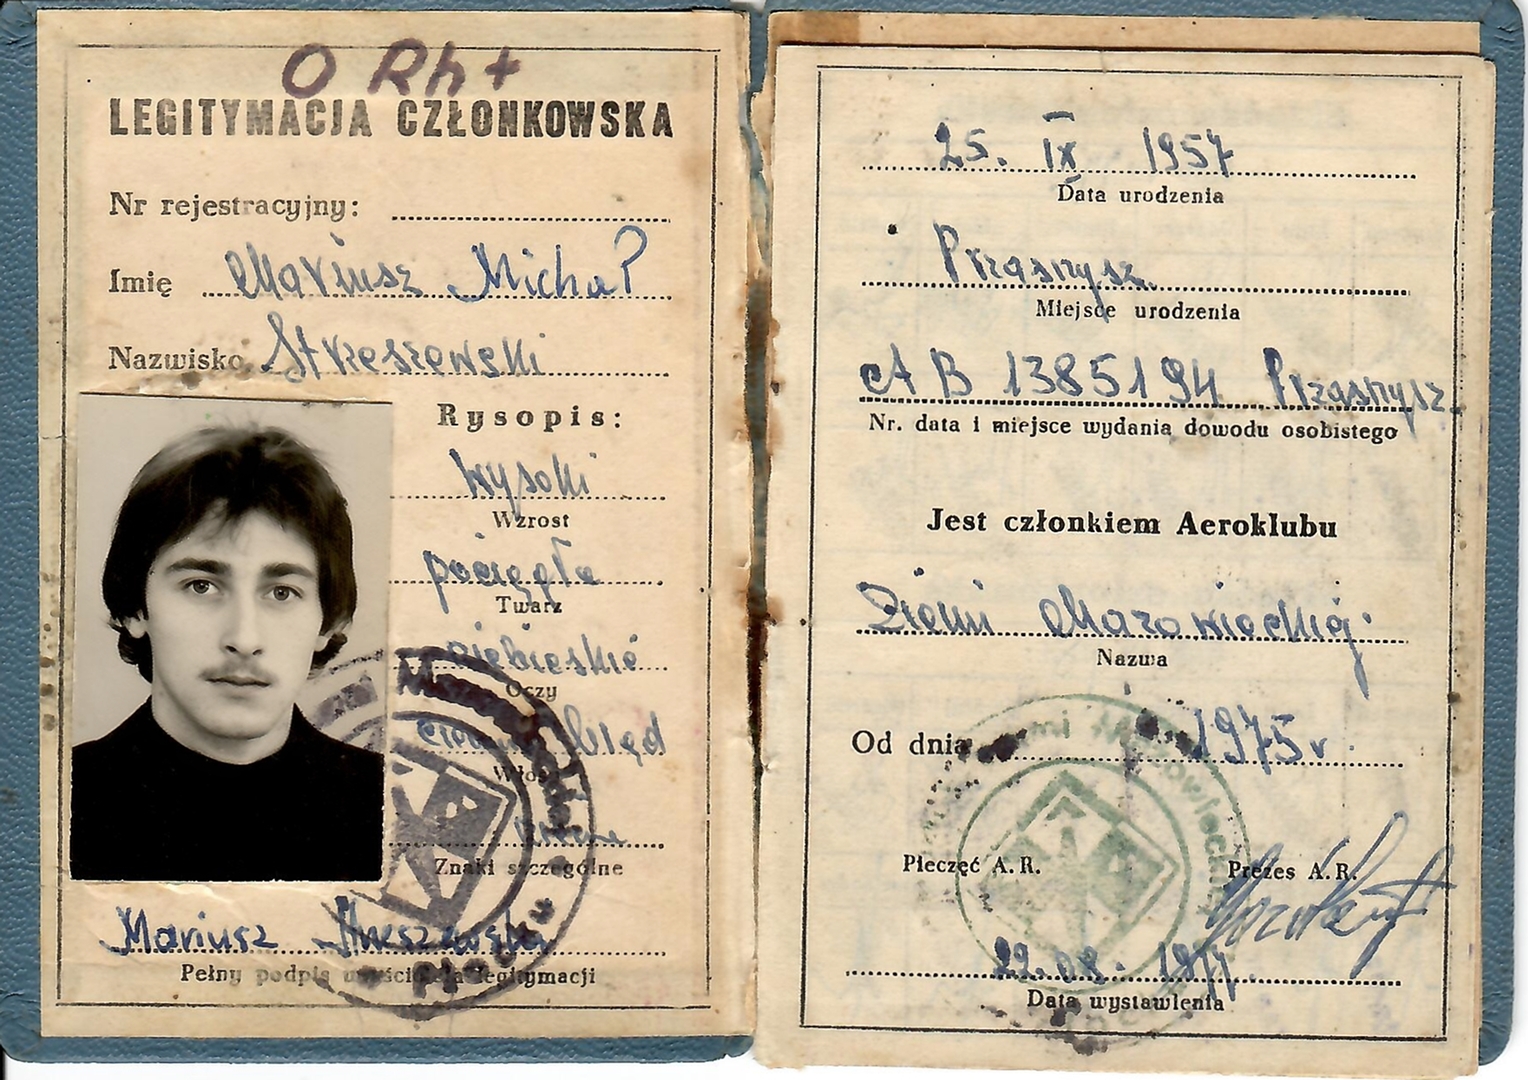 O Rh+
LEGITYMACJA CZŁONKOWSKA
Nr rejestracyjny:
Imię Mariusz Michał
Nazwisko Strzeszewski
Rysopis:
wysoki
Wzrost
pociągła
Twarz
niebieskie
Oczy
ciemny bląd
Włosy
Znaki szczególne
Mariusz Strzeszewski
Pełny podpis właściciela legitymacji
25. IX 1957
Data urodzenia
Przasnysz
Miejsce urodzenia
AB 1385194 Przasnysz
Nr. data i miejsce wydania dowodu osobistego
Jest członkiem Aeroklubu
Ziemi Mazowieckiej
Nazwa
Od dnia 1975 r.
Pieczęć A.R. Prezes A.R.
22.08. 1977.
Data wystawienia